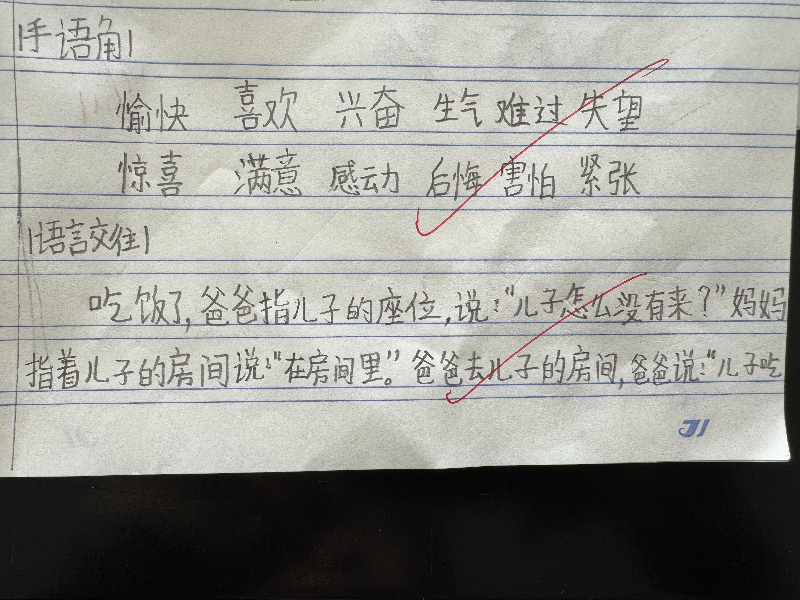 |手语角|
愉快 喜欢 兴奋 生气 难过 失望
惊喜 满意 感动 后悔 害怕 紧张
|语言交往|
吃饭了,爸爸指儿子的座位,说:“儿子怎么没有来？”妈妈
指着儿子的房间说:“在房间里。”爸爸去儿子的房间,爸爸说:“儿子吃